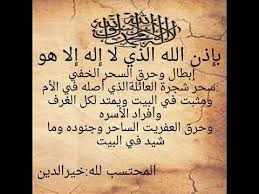 بإذن الله الذي لا إله إلا هو
إبطال وحرق السحر الخفي
:سحر شجرة العائلةالذي أصله في الأم
ومثبت في البيت ويمتد لكل الغرف
وأفراد الأسره
وحرق العفريت الساحر وجنوده وما
شيد في البيت
المحتسب لله:خيرالدين